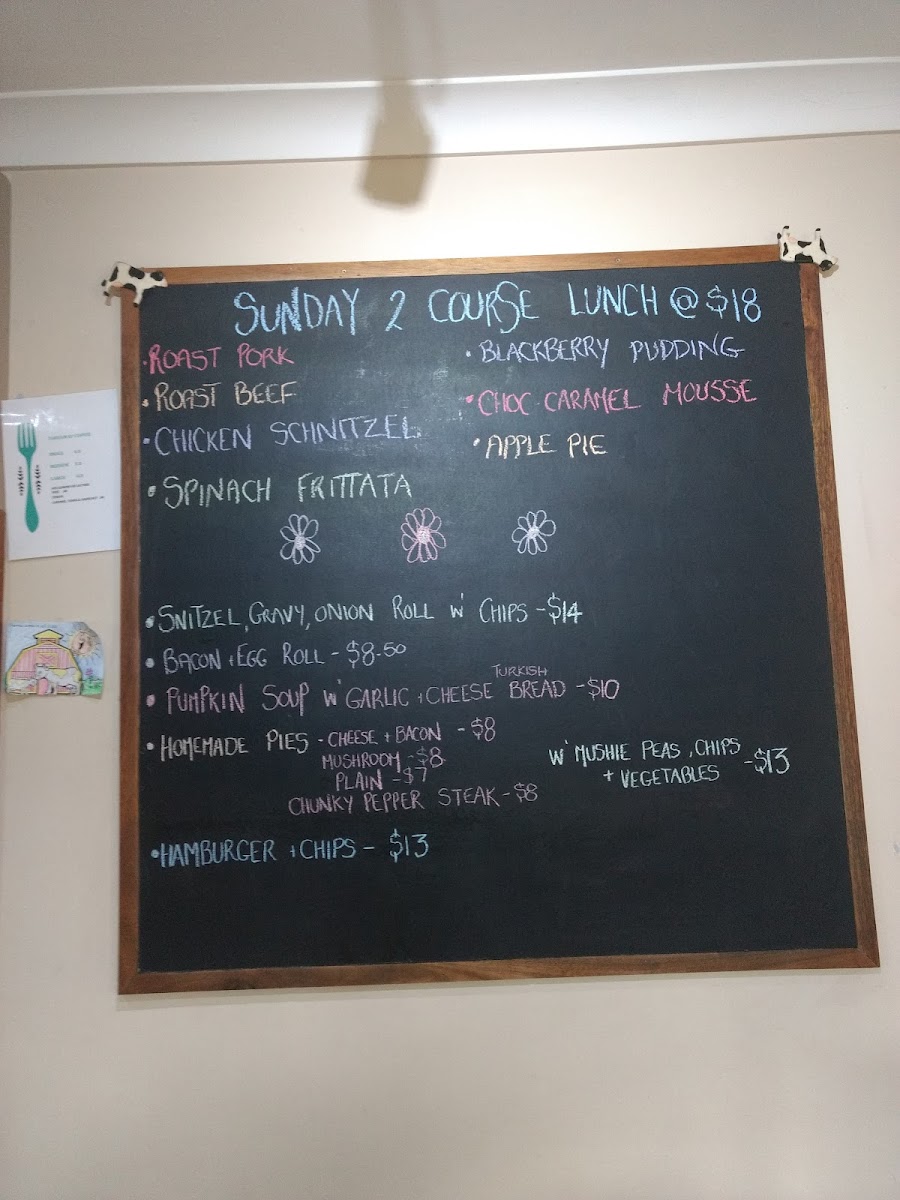 SUNDAY 2 COURSE LUNCH @ $18
• ROAST PORK
• ROAST BEEF
• CHICKEN SCHNITZEL
• SPINACH FRITTATA
• BLACKBERRY PUDDING
• CHOC-CARAMEL MOUSSE
• APPLE PIE
• SNITZEL, GRAVY, ONION ROLL W' CHIPS - $14
• BACON + EGG ROLL - $8.50
TURKISH
• PUMPKIN SOUP W' GARLIC + CHEESE BREAD - $10
• HOMEMADE PIES - CHEESE + BACON - $8
MUSHROOM - $8
PLAIN - $7
CHUNKY PEPPER STEAK - $8
W' MUSHIE PEAS, CHIPS
+ VEGETABLES - $13
• HAMBURGER + CHIPS - $13